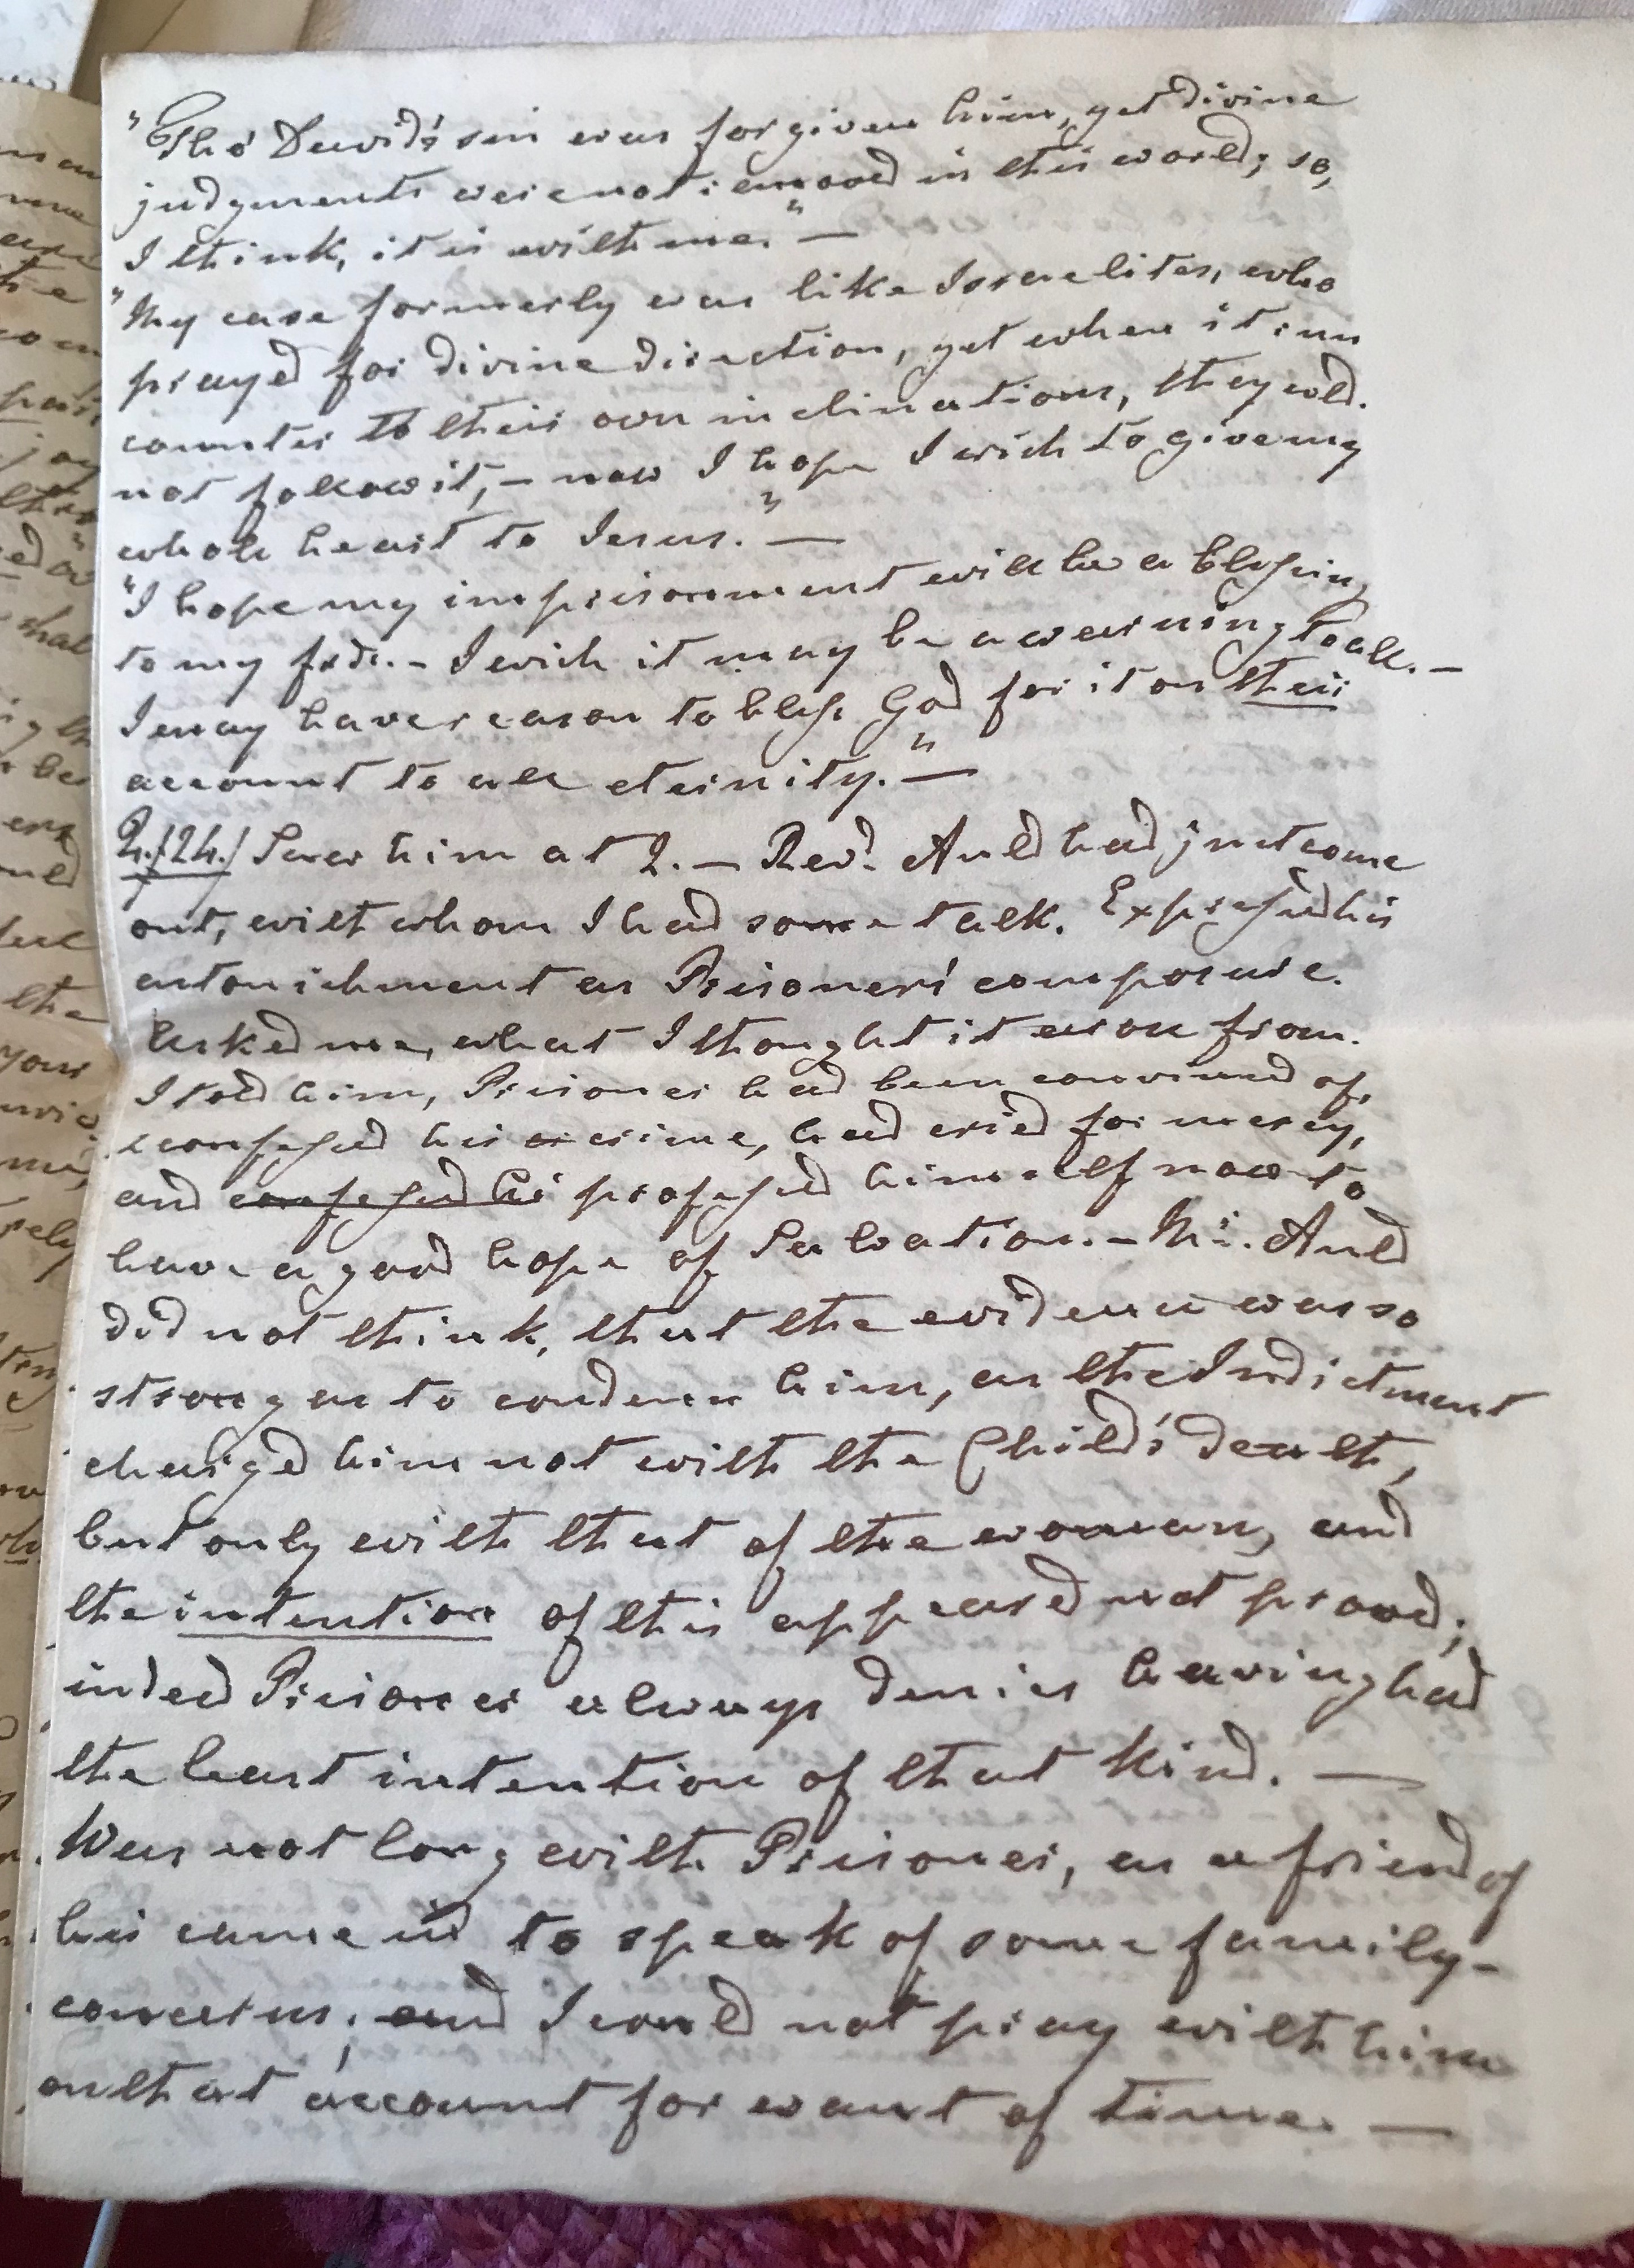 "Tho' David's sin was forgiven him, yet divine
judgments were not removed in this world; so,
I think, it is with me." —
"My case formerly was like Israelites, who
prayed for divine direction, yet when it run
counter to their own inclinations, they wld.
not follow it, – now I hope I wish to give my
whole heart to Jesus." —
"I hope my imprisonment will be a blessing
to my frds. – I wish it may be a warning to all. –
I may have reason to bless God for it on their
account to all eternity." —
2./24./ Saw him at 2. – Revd. Auld had just come
out, with whom I had some talk. Expressed his
astonishment as Prisoner's composure.
Asked me, what I thought it arose from.
I told him, Prisoner had been convinced of,
& confessed his cr crime, had cried for mercy,
and confessed his professed himself now to
have a good hope of Salvation. – Mr. Auld
did not think, that the evidence was so
strong as to condemn him, as the Indictment
charged him not with the Child's death,
but only with that of the woman, and
the intention of this appeared not proved;
indeed Prisoner always denies having had
the least intention of that kind. —
Was not long with Prisoner, as a friend of
his came in to speak of some family-
concerns; and I could not pray with him
on that account for want of time. —